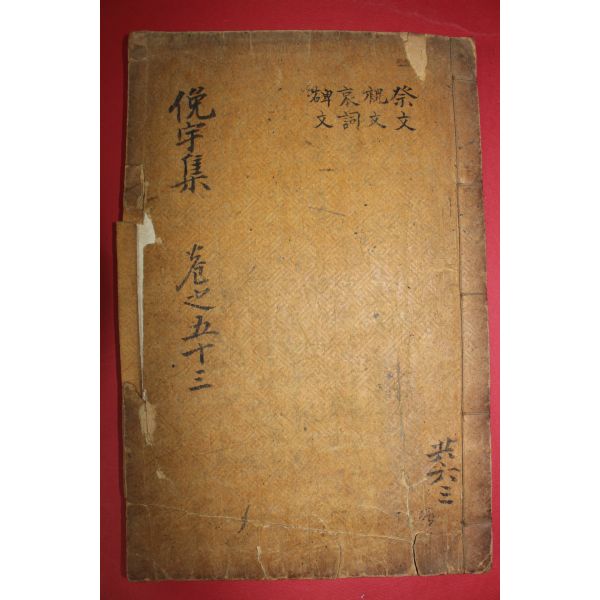 祭文
祝文
哀詞
碑文
俛宇集 卷之五十三
共六三